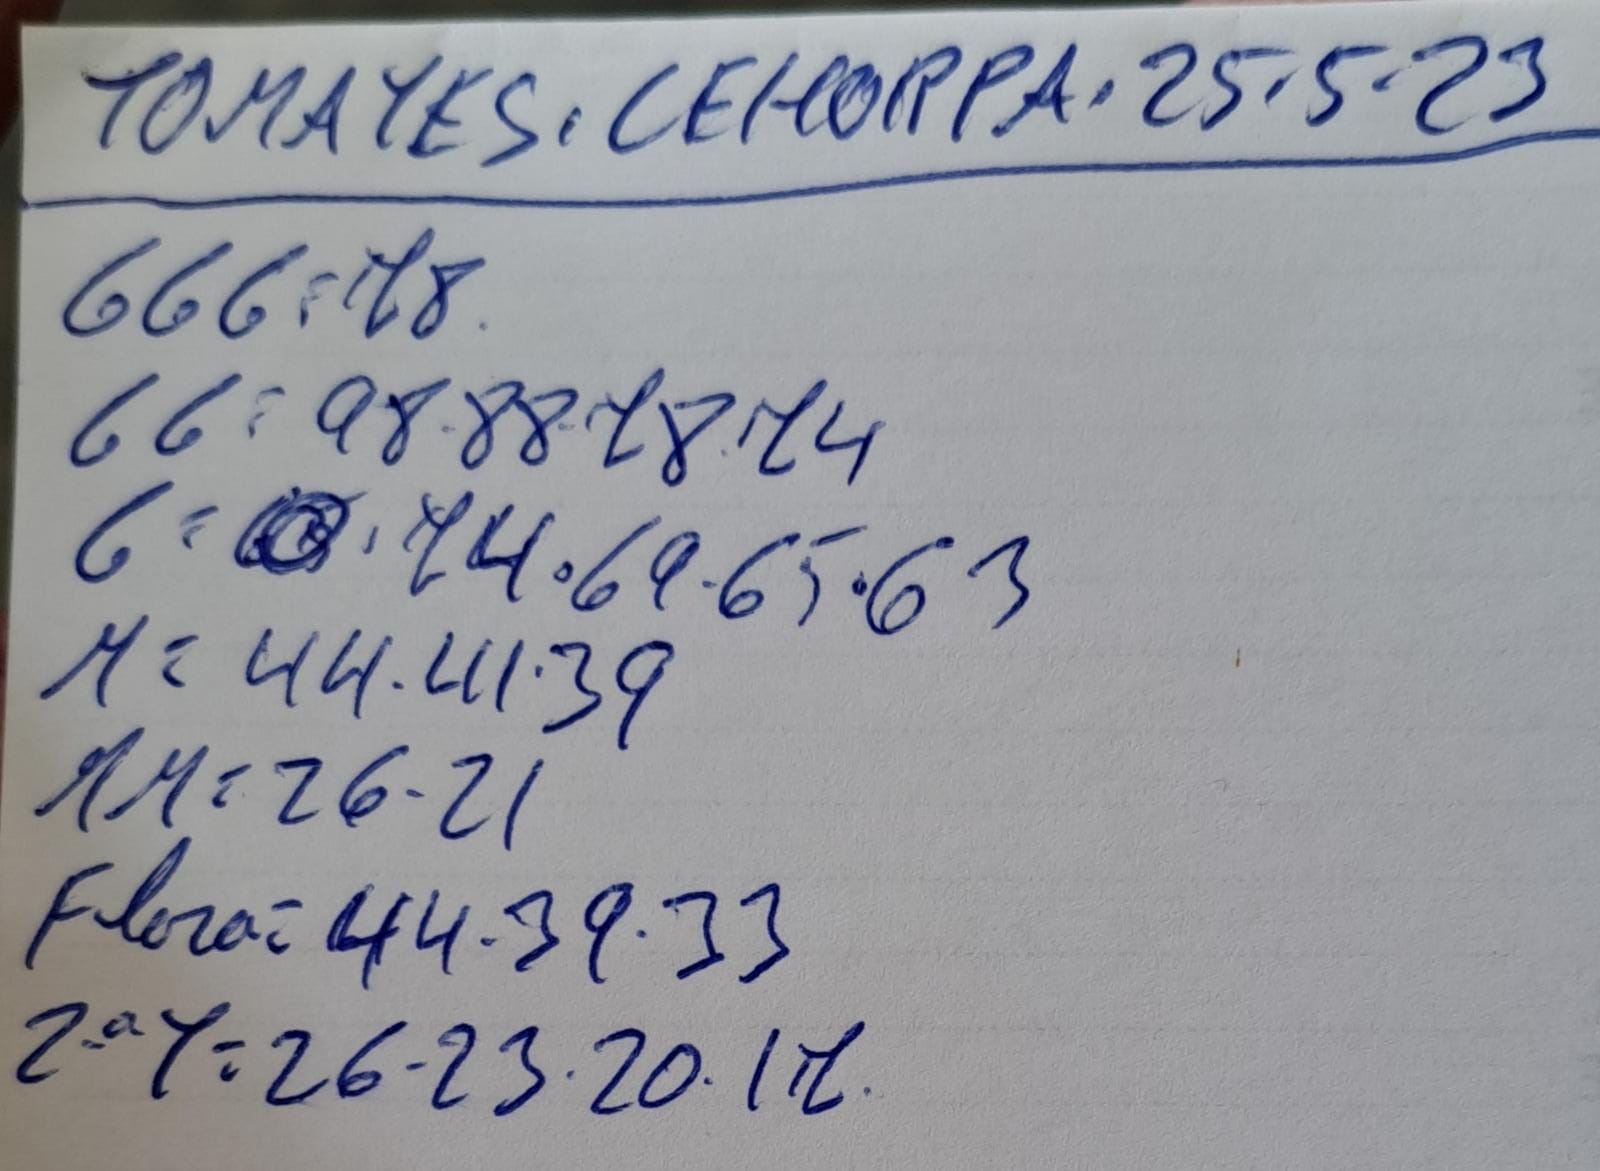 TOMATES. CEHORPA. 25.5.23
GGG=78.
GG=98.88.78.74
G= .74.69.65.63
M=44.41.39
MM=26.21
Flora=44.39.33
2.ª T=26.23.20.17.